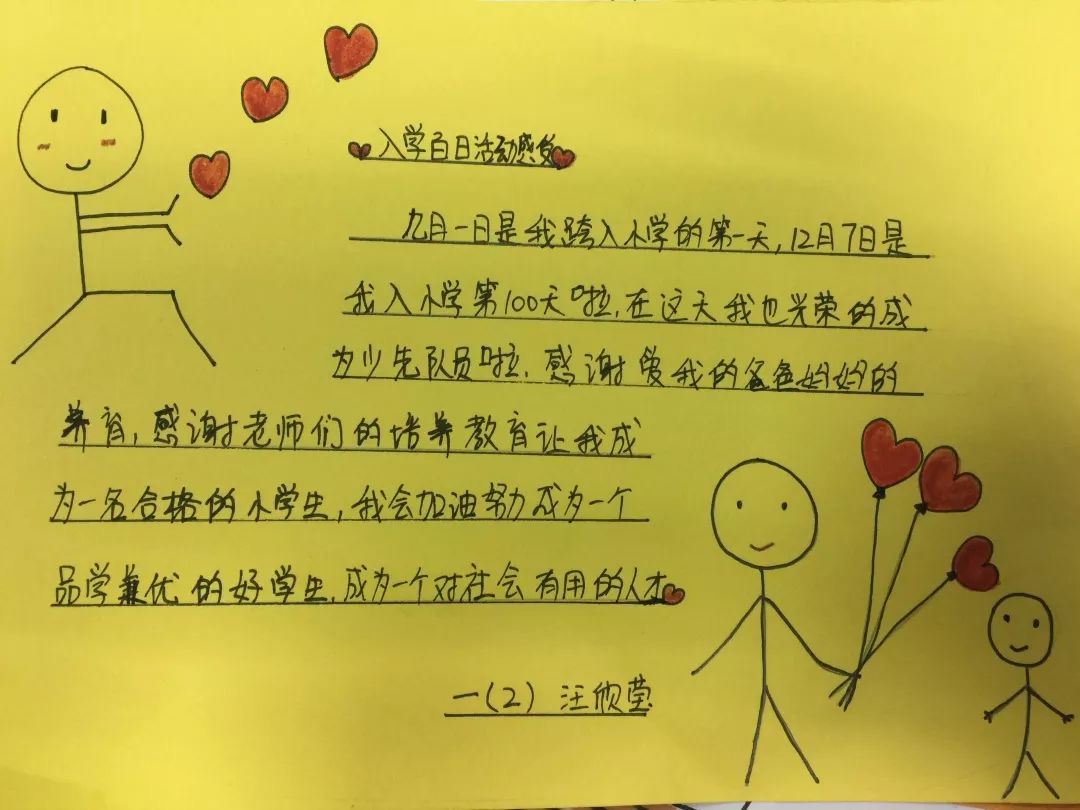 入学百日活动感发
九月一日是我跨入小学的第一天,12月7日是
我入小学第100天啦.在这天我也光荣的成
为少先队员啦.感谢爱我的爸爸妈妈的
养育,感谢老师们的培养教育让我成
为一名合格的小学生,我会加油努力成为一个
品学兼优的好学生.成为一个对社会有用的人才
一(2) 汪欣莹